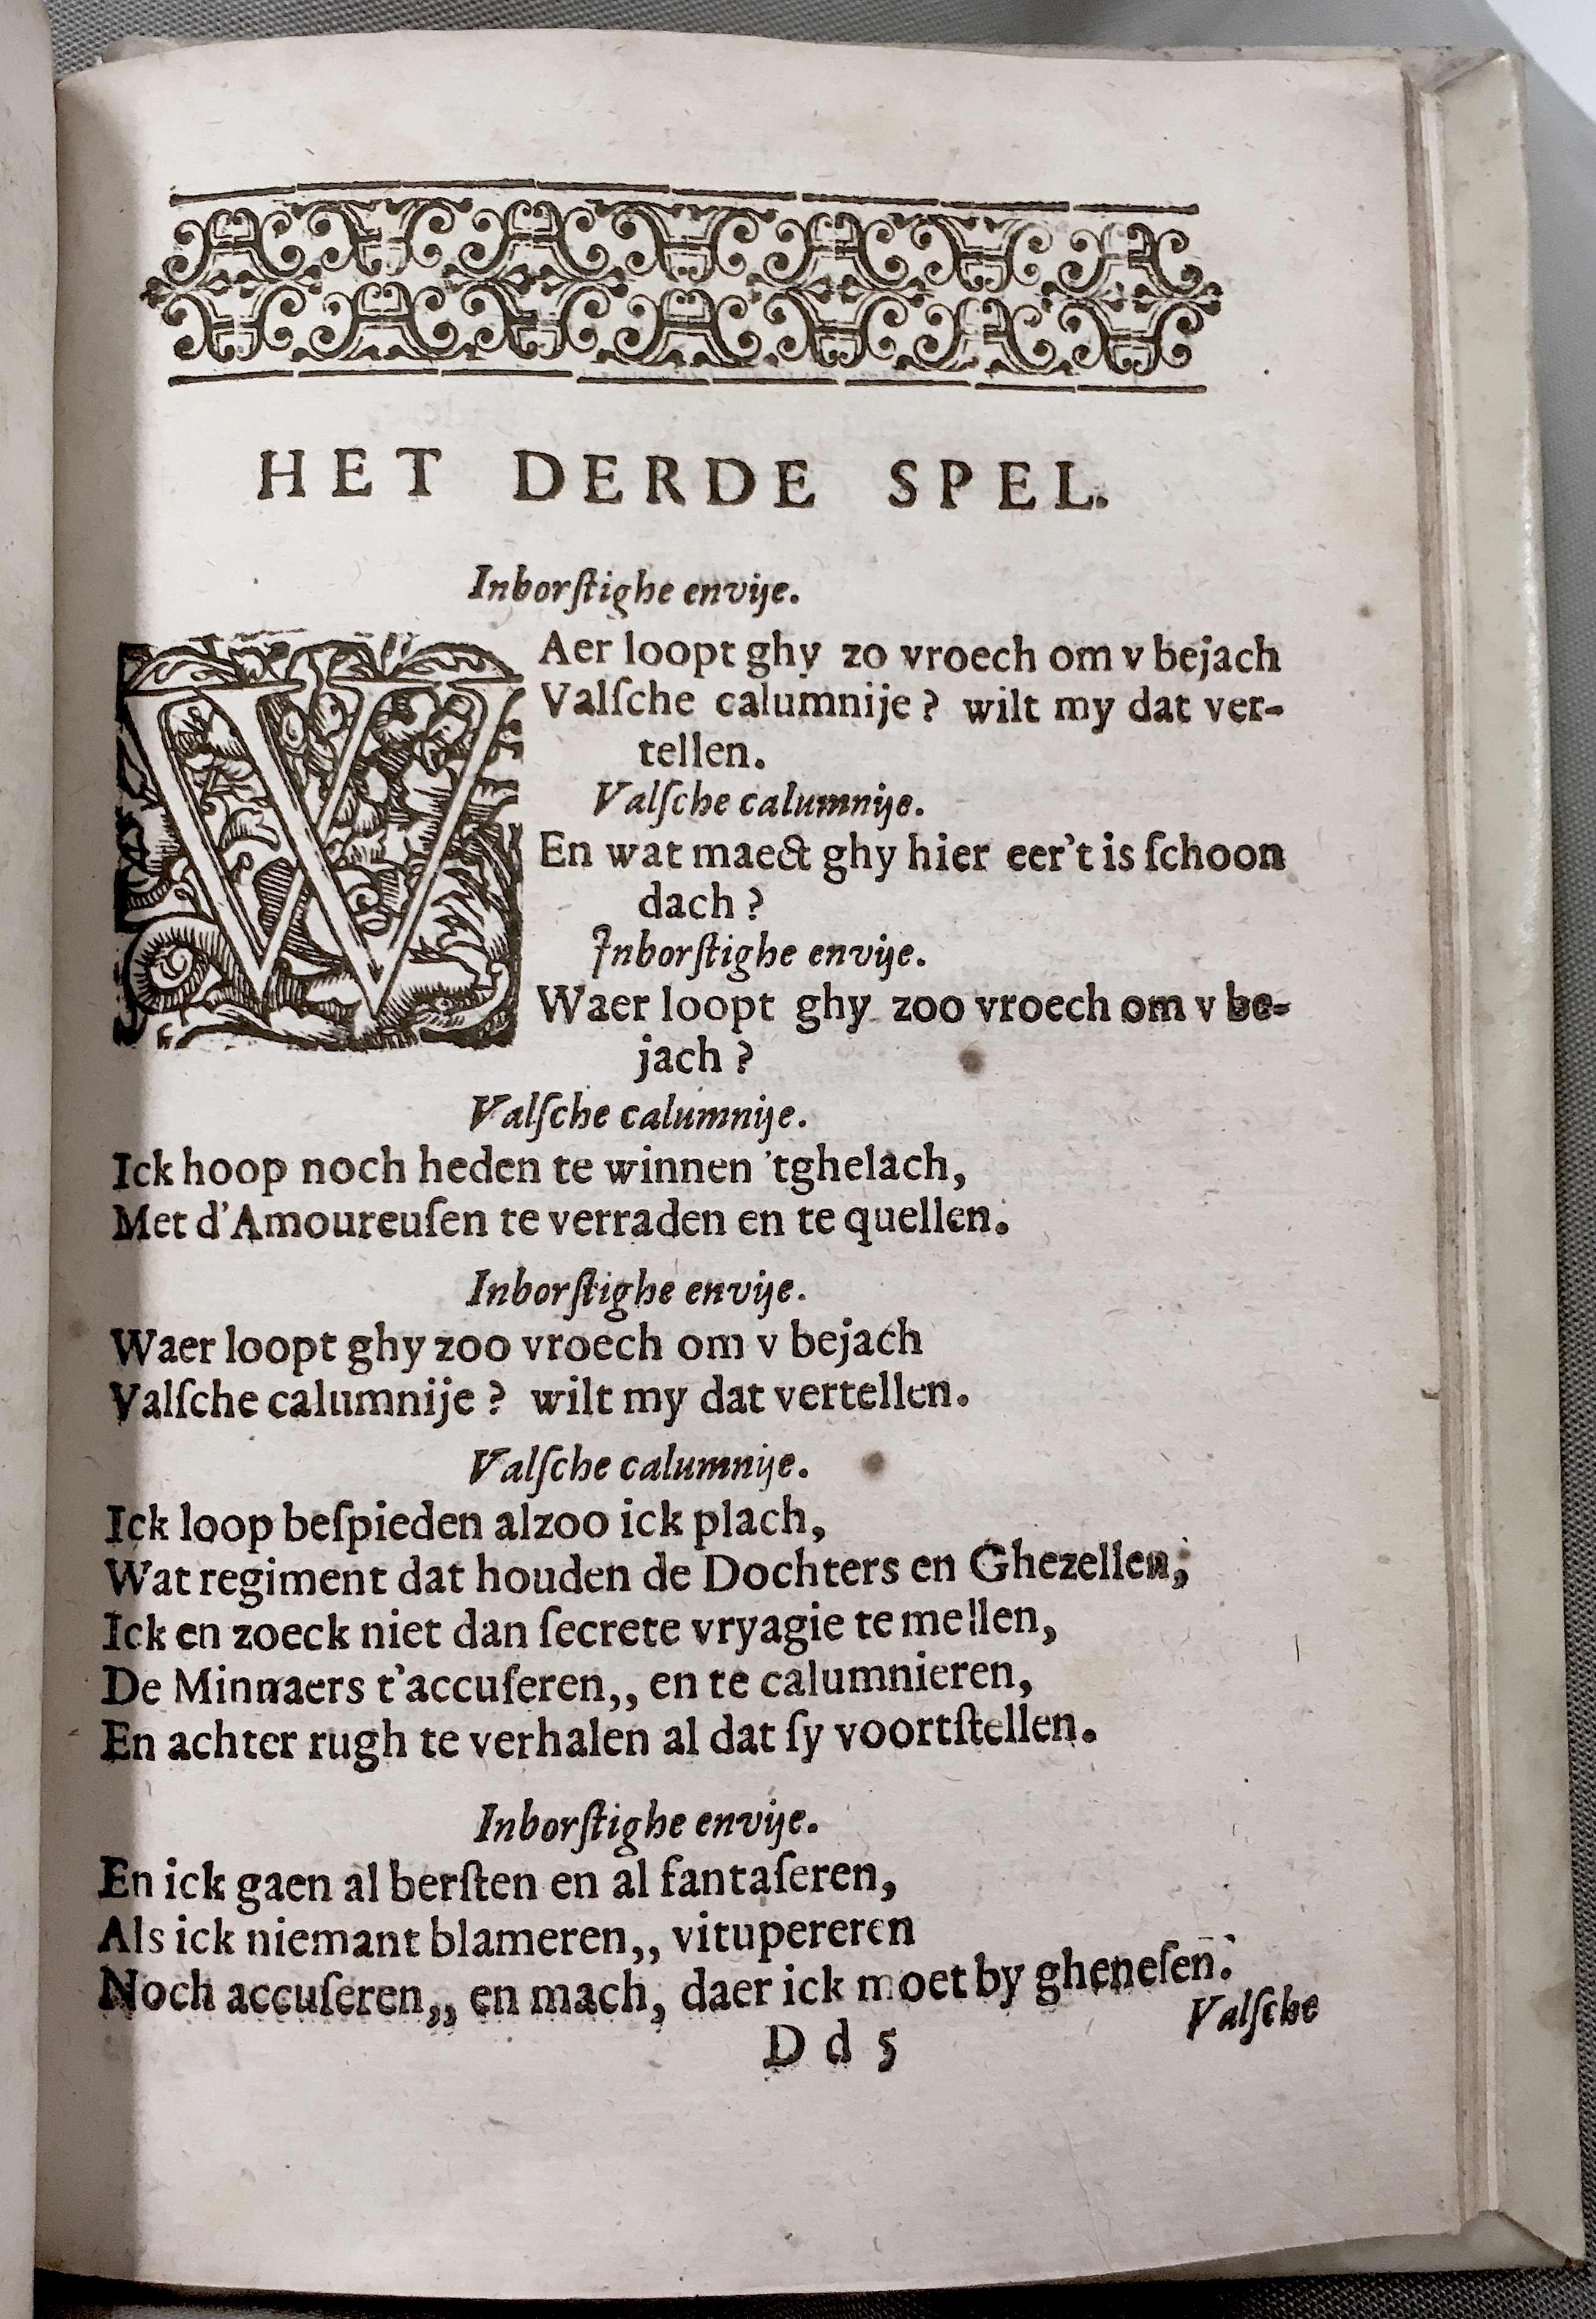 HET DERDE SPEL.
Inborſtighe envije.
WAer loopt ghy zo vroech om v bejach
Valſche calumnije? wilt my dat ver-
tellen.
Valſche calumnije.
En wat maect ghy hier eer't is ſchoon
dach?
Inborſtighe envije.
Waer loopt ghy zoo vroech om v be-
jach?
Valſche calumnije.
Ick hoop noch heden te winnen 'tghelach,
Met d'Amoureuſen te verraden en te quellen.
Inborſtighe envije.
Waer loopt ghy zoo vroech om v bejach
Valſche calumnije? wilt my dat vertellen.
Valſche calumnije.
Ick loop beſpieden alzoo ick plach,
Wat regiment dat houden de Dochters en Ghezellen;
Ick en zoeck niet dan ſecrete vryagie te mellen,
De Minnaers t'accuſeren,, en te calumnieren,
En achter rugh te verhalen al dat ſy voortſtellen.
Inborſtighe envije.
En ick gaen al berſten en al fantaſeren,
Als ick niemant blameren,, vitupereren
Noch accuſeren,, en mach, daer ick moet by gheneſen.
Dd 5
Valſche